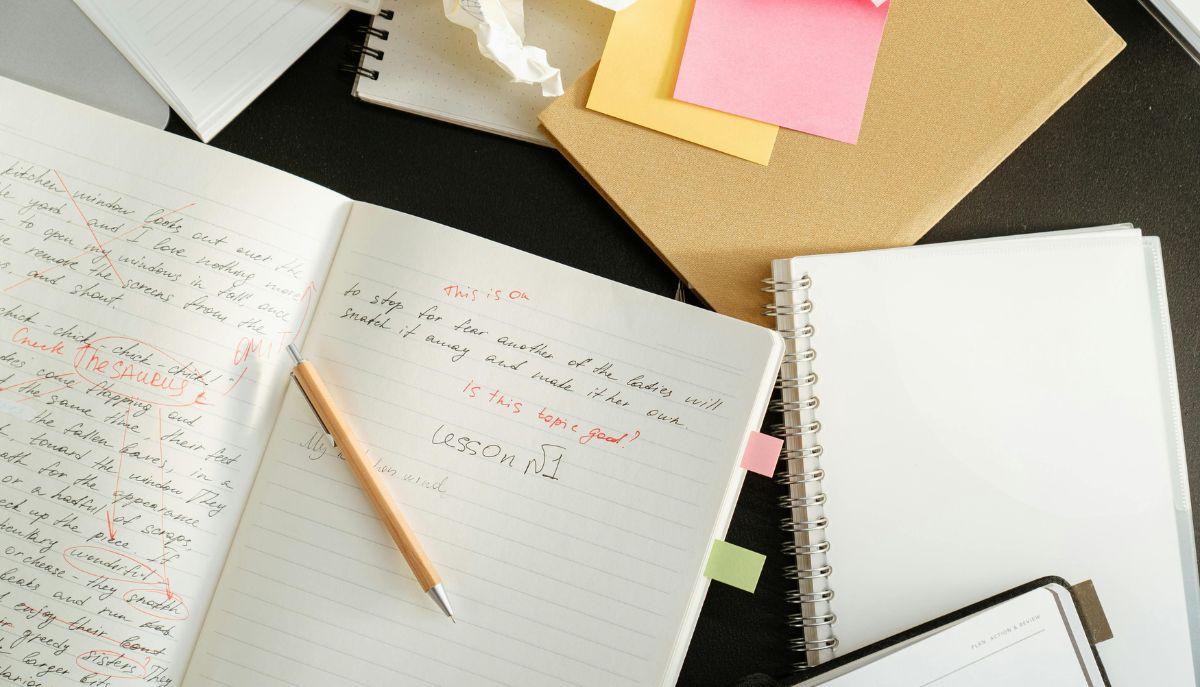 kitchen window looks out over the
yard, and I love nothing more
to open my windows in fall, once
remove the screens from the
and shout.
OMIT
chick-chick, chick-chick!
Check Thesaurus
come flapping and
the same time, their feet
the fallen leaves, in a
toward the window. They
for the appearance
or a handful of scraps,
up the piece. If
wonderful
or cheese - they snatch
beaks and run
enjoy their
greedy sisters? They
larger bits
This is Ok
to stop for fear another of the ladies will
snatch it away and make it her own.
Is this topic good?
Lesson №1
My
has mind
PLAN, ACTION & REVIEW